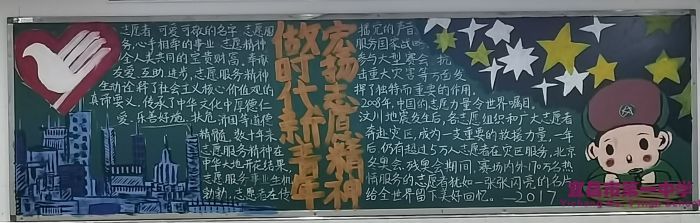 志愿者 可爱可敬的名字 志愿服
务,心手相牵的事业 志愿精神
全人类共同的宝贵财富,奉献
友爱 互助 进步,志愿服务精神
生动诠释了社会主义核心价值观的
真谛要义,传承了中华文化中厚德仁
爱、乐善好施、扶危济困等道德
精髓,数十年来,
志愿服务精神在
中华大地开花结果,
志愿服务事业生机
勃勃,志愿者在传
宏扬志愿精神
做时代新青年
播党的声音
服务国家战略
参与大型赛会 抗
击重大灾害等方面发
挥了独特而重要的作用。
2008年,中国的志愿力量令世界瞩目。
汶川地震发生后,各志愿组织和广大志愿者
奔赴灾区,成为一支重要的救援力量,一年
后仍有超过5万人志愿者在灾区服务,北京
冬奥会、残奥会期间,赛场内外170万名热
情服务的志愿者犹如一张张闪亮的名片
给全世界留下美好回忆。—2017
宜昌市第一中学